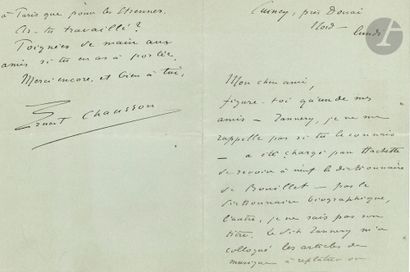 Cuincy, près Douai
Nord
lundi
Mon cher ami,
figure-toi qu'un de mes
amis – Tannery, je ne me
rappelle pas si tu le connais
– a été chargé par Hachette
de revoir à neuf le dictionnaire
de Bouillet – pas le
dictionnaire biographique,
l'autre, je ne sais pas son
titre. Le dit Tannery m'a
colloqué les articles de
musique à replâtrer ou
à Paris que pour les étrennes.
As-tu travaillé ?
Poignées de main aux
amis si tu en as à portée.
Merci encore, et bien à toi,
Ernest Chausson